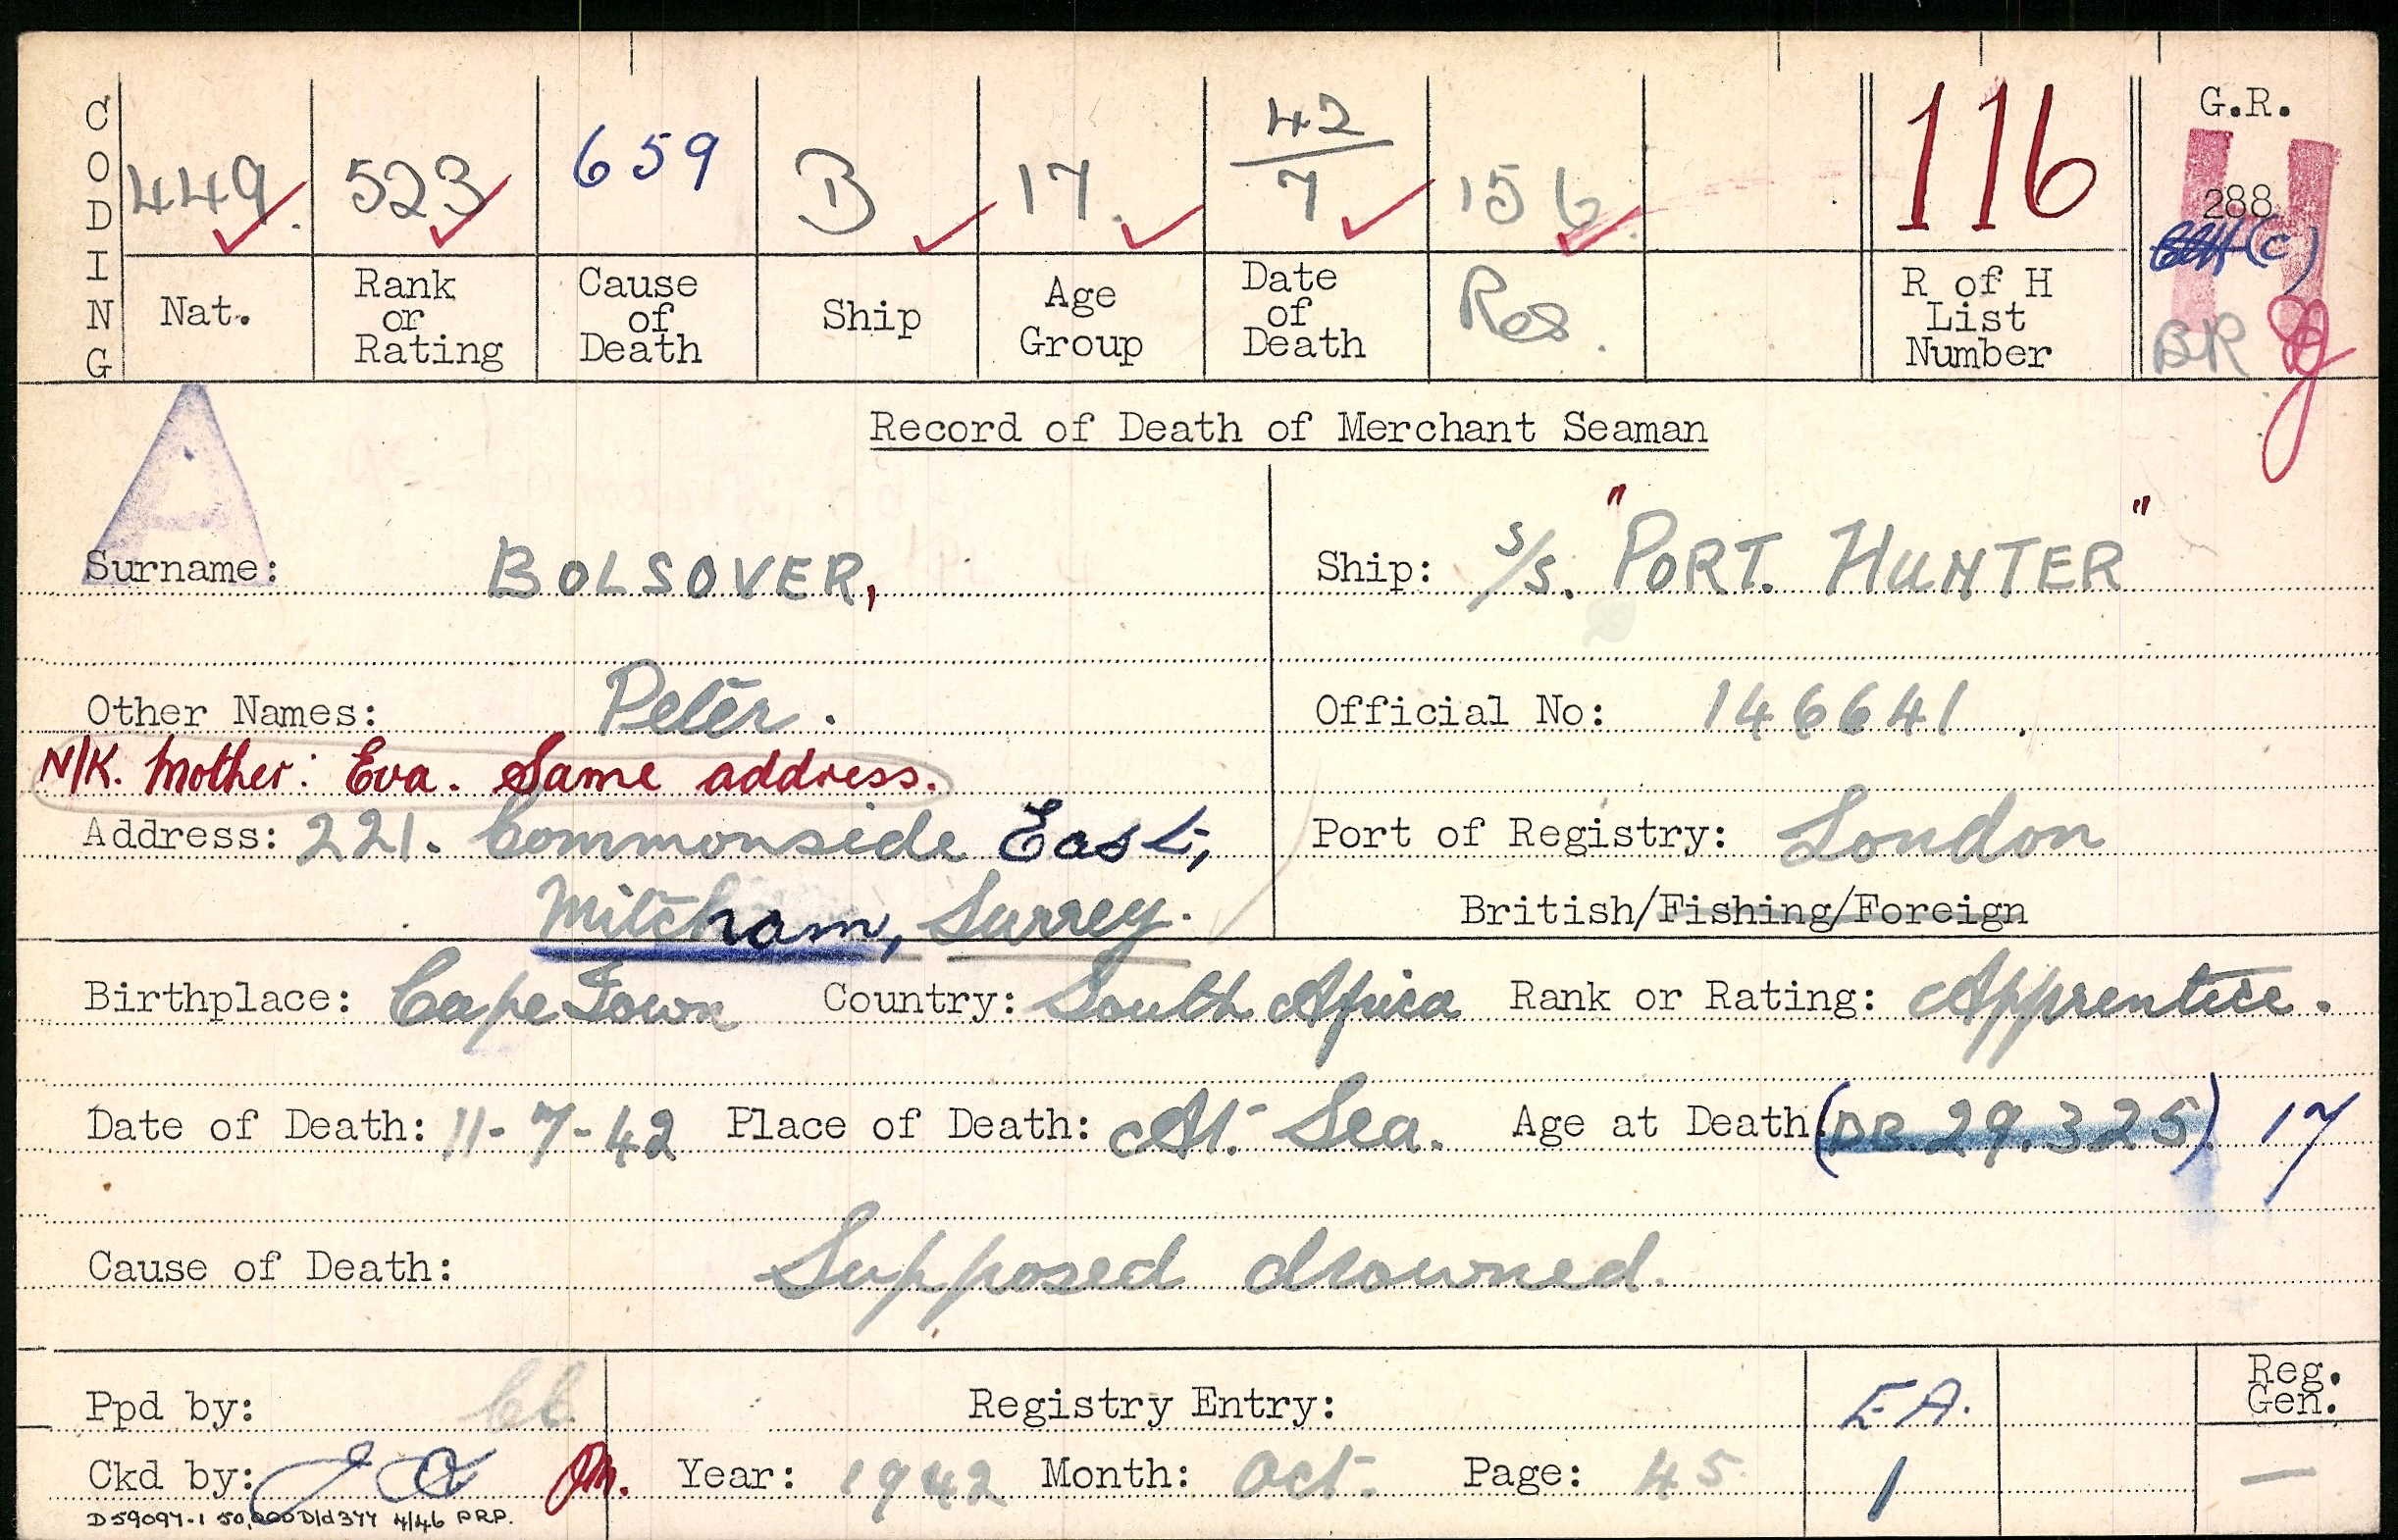 CODING
449. 523 659 B 17. 42/7 156 116 G.R.
288
(C)
Nat. Rank or Rating Cause of Death Ship Age Group Date of Death Res. R of H List Number BR
A
Record of Death of Merchant Seaman
Surname: BOLSOVER, Ship: s/s. "PORT. HUNTER"
Other Names: Peter. Official No: 146641.
N/K. Mother: Eva. Same address.
Address: 221. Commonside East, Port of Registry: London
Mitcham, Surrey. British/Fishing/Foreign
Birthplace: Cape Town Country: South Africa Rank or Rating: Apprentice.
Date of Death: 11-7-42 Place of Death: At Sea. Age at Death: (DB. 29.3.25). 17
Cause of Death: Supposed drowned.
Ppd by: Registry Entry: EA. Reg. Gen.
Ckd by: Year: 1942 Month: Oct. Page: 45 1 —
D59097-1 50,000 D/d377 4/46 P.R.P.